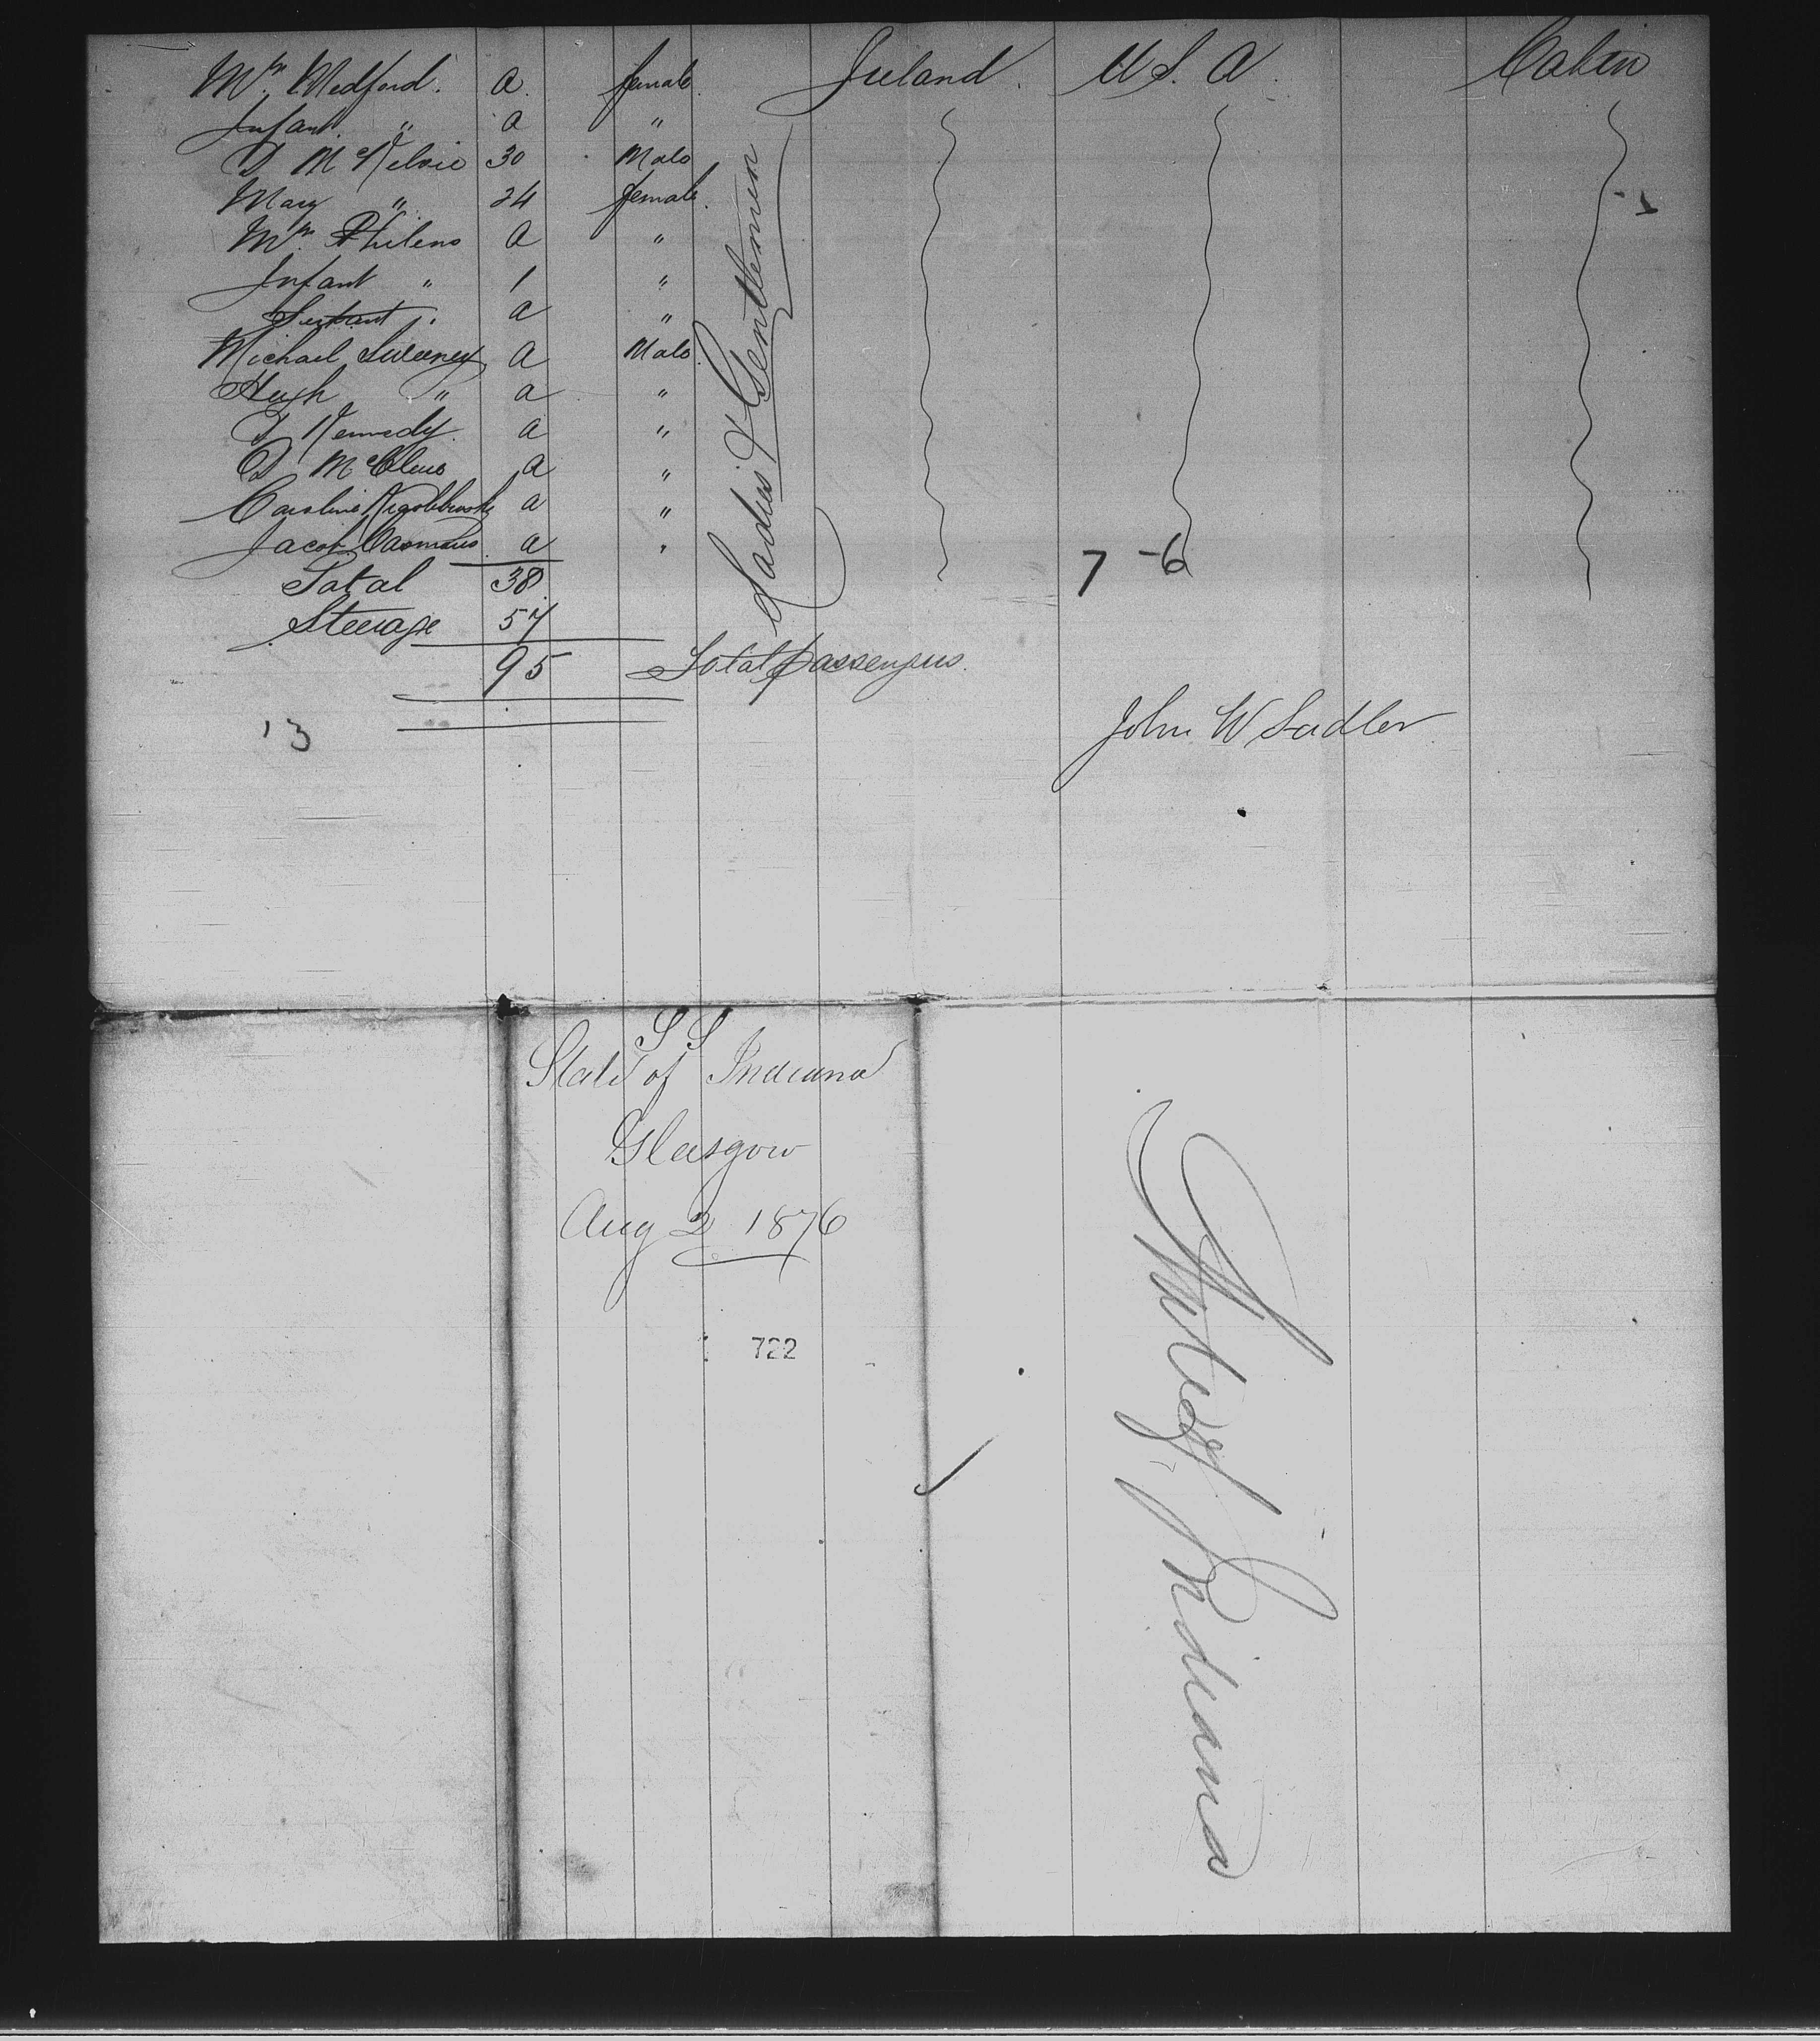 Mrs. Medford. a. female. Ireland. U S. A. Cabin
Infant " a "
D McKelvie 30 Male
Mary " 24 female.
Mrs. Philens a "
Infant " 1 "
Servant " a "
Michael Sweeney a Male
Hugh " a "
D Kennedy. a "
D McClure a "
Caroline a "
Jacob a "
Ladies & Gentlemen
7 -6
Total 38
Steerage 57
95 Total passengers.
13
John W Sadler
S S
State of Indiana
Glasgow
Aug 2 1876
722
State of Indiana